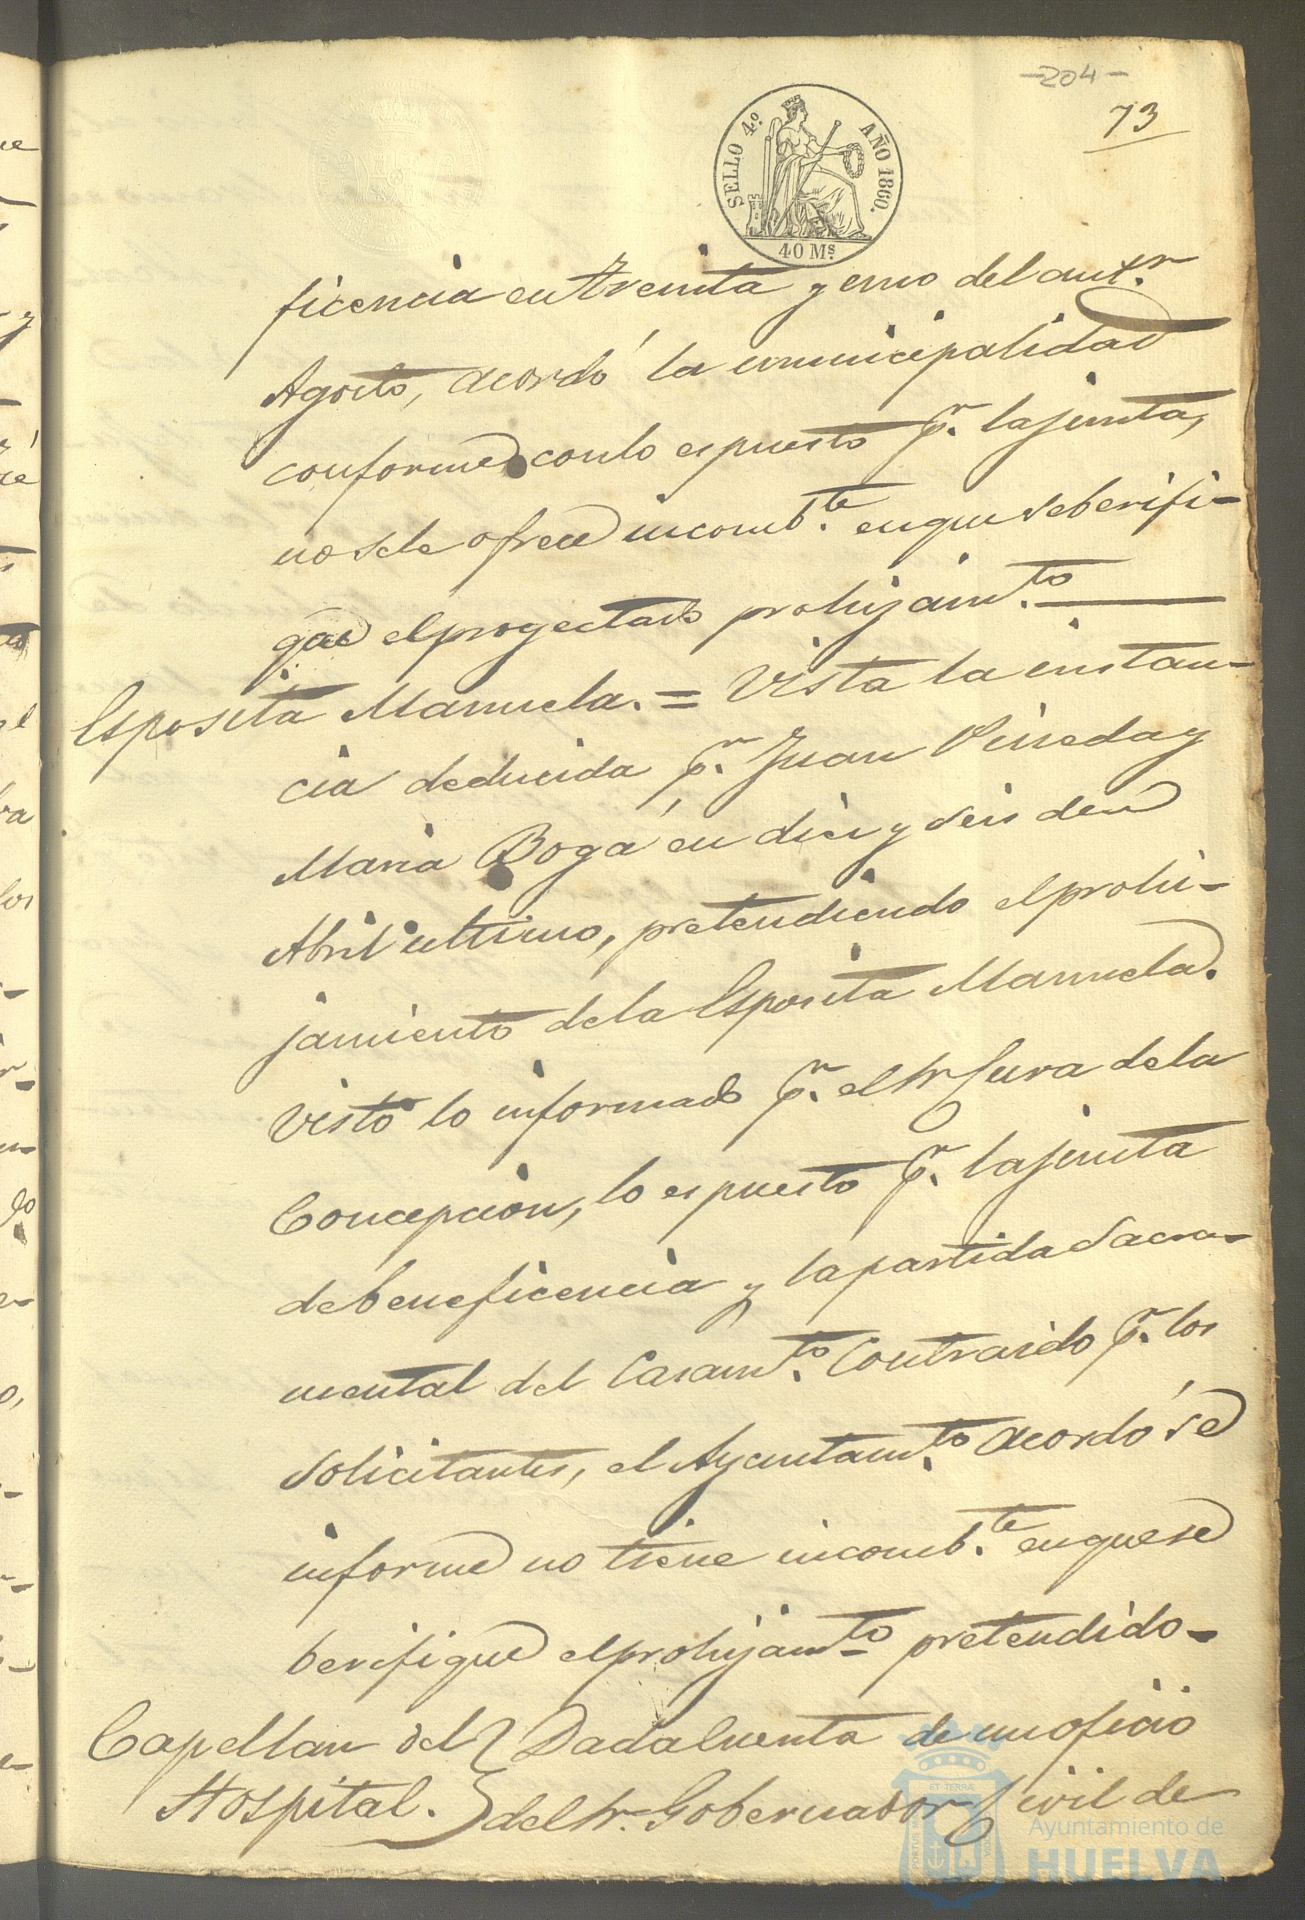 -204-
73
SELLO 4º AÑO 1860.
40 Ms.
ficencia en treinta y uno del antr.
Agosto, acordó la municipalidad
conforme con lo espuesto pr. la junta,
no se le ofrece incombte. en que se berifi-
que el proyectado prohijamto.
Esposita Manuela. = Vista la instan-
cia deducida pr. Juan Pineda y
Maria Boga en diez y seis de
Abril ultimo, pretendiendo el prohi-
jamiento de la Esposita Manuela.
Visto lo informado pr. el Sr Cura de la
Concepcion, lo espuesto pr. la junta
de beneficencia y la partida Sacra-
mental del Casamto. Contraido pr. los
solicitantes, el Ayuntamto. acordó se
informe no tiene incombte. en que se
berifique el prohijamto pretendido-
Capellan del } Dada Cuenta de un oficio
Hospital. } del Sr. Gobernador Civil de
Ayuntamiento de
HUELVA